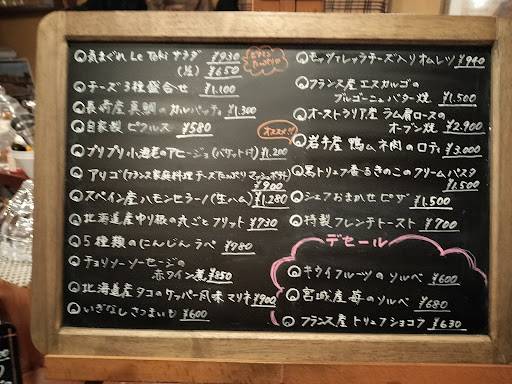 気まぐれ Le Teki サラダ ¥930
(小) ¥650
チーズ3種盛合せ ¥1.100
長崎産 真鯛のカルパッチョ ¥1.300
自家製 ピクルス ¥580
オススメ!!
プリプリ小海老のアヒージョ(バゲット付) ¥1.200
アリゴ(フランス家庭料理 チーズたっぷりマッシュポテト)
¥900
スペイン産ハモンセラーノ(生ハム) ¥1.280
北海道産 の丸ごとフリット ¥730
5種類のにんじんラペ ¥980
チョリソーソーセージの
赤ワイン煮 ¥850
北海道産タコのケッパー風味マリネ ¥900
いぎなしさつまいも ¥600
モッツァレラチーズ入りオムレツ ¥940
フランス産エスカルゴの
ブルゴーニュバター焼 ¥1.500
オーストラリア産 ラム肩ロースの
オーブン焼 ¥2.900
岩手産 鴨ムネ肉のロティ ¥3.000
黒トリュフ香るきのこのクリームパスタ
¥1.500
シェフおまかせピザ ¥1.500
特製フレンチトースト ¥700
デセール
キウイフルーツのソルベ ¥600
宮城産苺のソルベ ¥680
フランス産トリュフショコラ ¥630